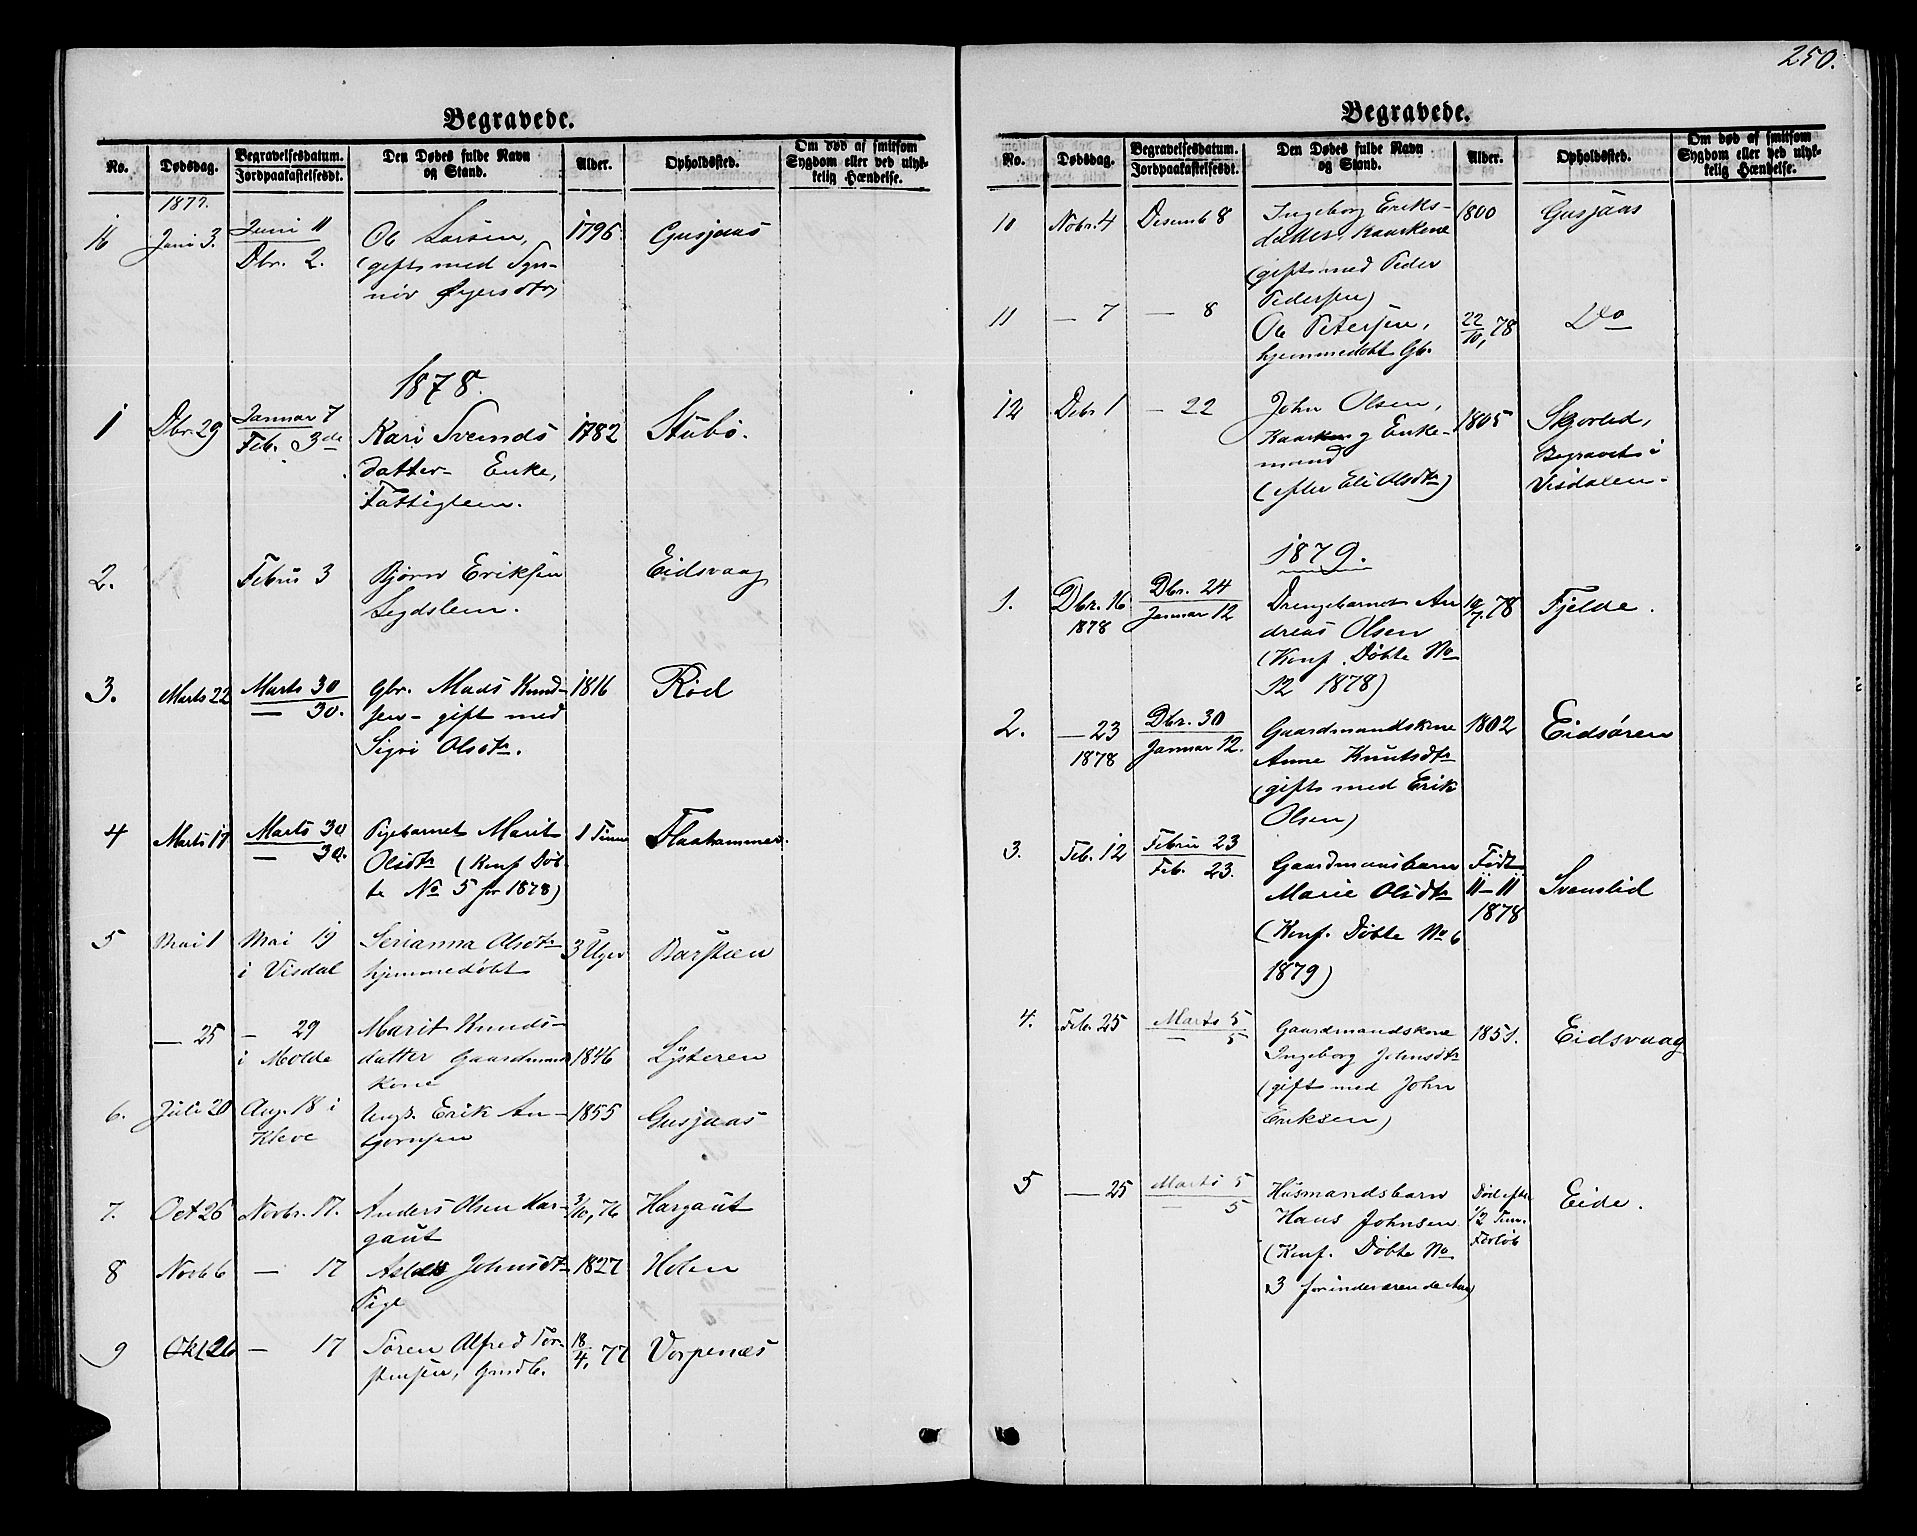 250.
Begravede.
No. Dødsdag. Begravelsesdatum. Jordpaakastelsesdt. Den Dødes fulde Navn og Stand. Alder. Opholdssted. Om død af smitsom Sygdom eller ved ulykkelig Hændelse.
1877.
16 Juni 3. Juni 11 Ole Larsen, 1795 Gusjaas
Dbr. 2. (gift med Syn-
nøv
1878.
1 Dbr. 29 Januar 7 Kari Svends 1782 Stubø.
Feb. 3de datter Enke,
Fattiglem.
2. Febru 3 Bjørn Eriksen Eidsvaag
Legdslem.
3. Marts 22 Marts 30 Gbr. Mads Knud- 1816 Rød
— 30. sen – gift med
Sigri Olsdtr.
4 Marts 17 Marts 30 Pigebarnet Marit 1 Time Flaahammer.
— 30. Olsdtr (Konf Døb-
te No 5 for 1878)
5 Mai 1 Mai 19 Serianna Olsdtr 3 Uger Barstein
i Visdal hjemmedøbt
— 25 — 29 Marit Knuds-
i Molde datter Gaardmands 1846 Lysteren
kone
6. Juli 20 Aug. 18 i Ungk. Erik An- 1855 Gusjaas
Kleve bjørnsen
7. Oct 26 Novbr. 17. Anders Olsen Har- 3/10, 76 Hargaut
gaut
8 Novb 6 — 17 Johnsdtr 1827 Holen
Pige
9 Okt 26 — 17 Søren Alfred Tor- 18/4, 77 Vorpenæs
stensen,
Begravede.
No. Dødsdag. Begravelsesdatum. Jordpaakastelsesdt. Den Dødes fulde Navn og Stand. Alder. Opholdssted. Om død af smitsom Sygdom eller ved ulykkelig Hændelse.
10 Nobr. 4 Desemb 8 Ingeborg Eriks- 1800 Gusjaas
datter, Kaarkone
(gift med Peder
Pedersen)
11 — 7 — 8 Ole Petersen, 22/10, 78 Do
hjemmedøbt Gb.
12 Debr 1 — 22 John Olsen, 1805 Skjorlid,
Kaarm og Enke- Begravet i
mand Visdalen.
(efter Eli Olsdtr)
1879.
1. Dbr. 16 Dbr. 24 Drengebarnet An 10/7, 78 Fjelde.
1878 Januar 12 dreas Olsen
(Konf. Døbte No
12 1878)
2. — 23 Dbr. 30 Gaardmandskone 1802 Eidsøren
1878 Januar 12. Anne Knutsdtr
(gift med Erik
Olsen)
3. Feb. 12 Febru 23 Gaardmansbarn Født Svenslid
Feb. 23. Marie Olsdtr 11–11
(Konf. Døbte No 6 1878
1879)
4. Feb. 25 Marts 5 Gaardmandskone 1851. Eidsvaag
— 5 Ingeborg Johnsdtr
(gift med John
Eriksen)
5 — 25 Marts 5 Husmandsbarn Død efter Eide.
— 5 Hans Johnsen 1/2 Tim.
(Konf. Døbte No Forløb
3 for inderværende Aar)